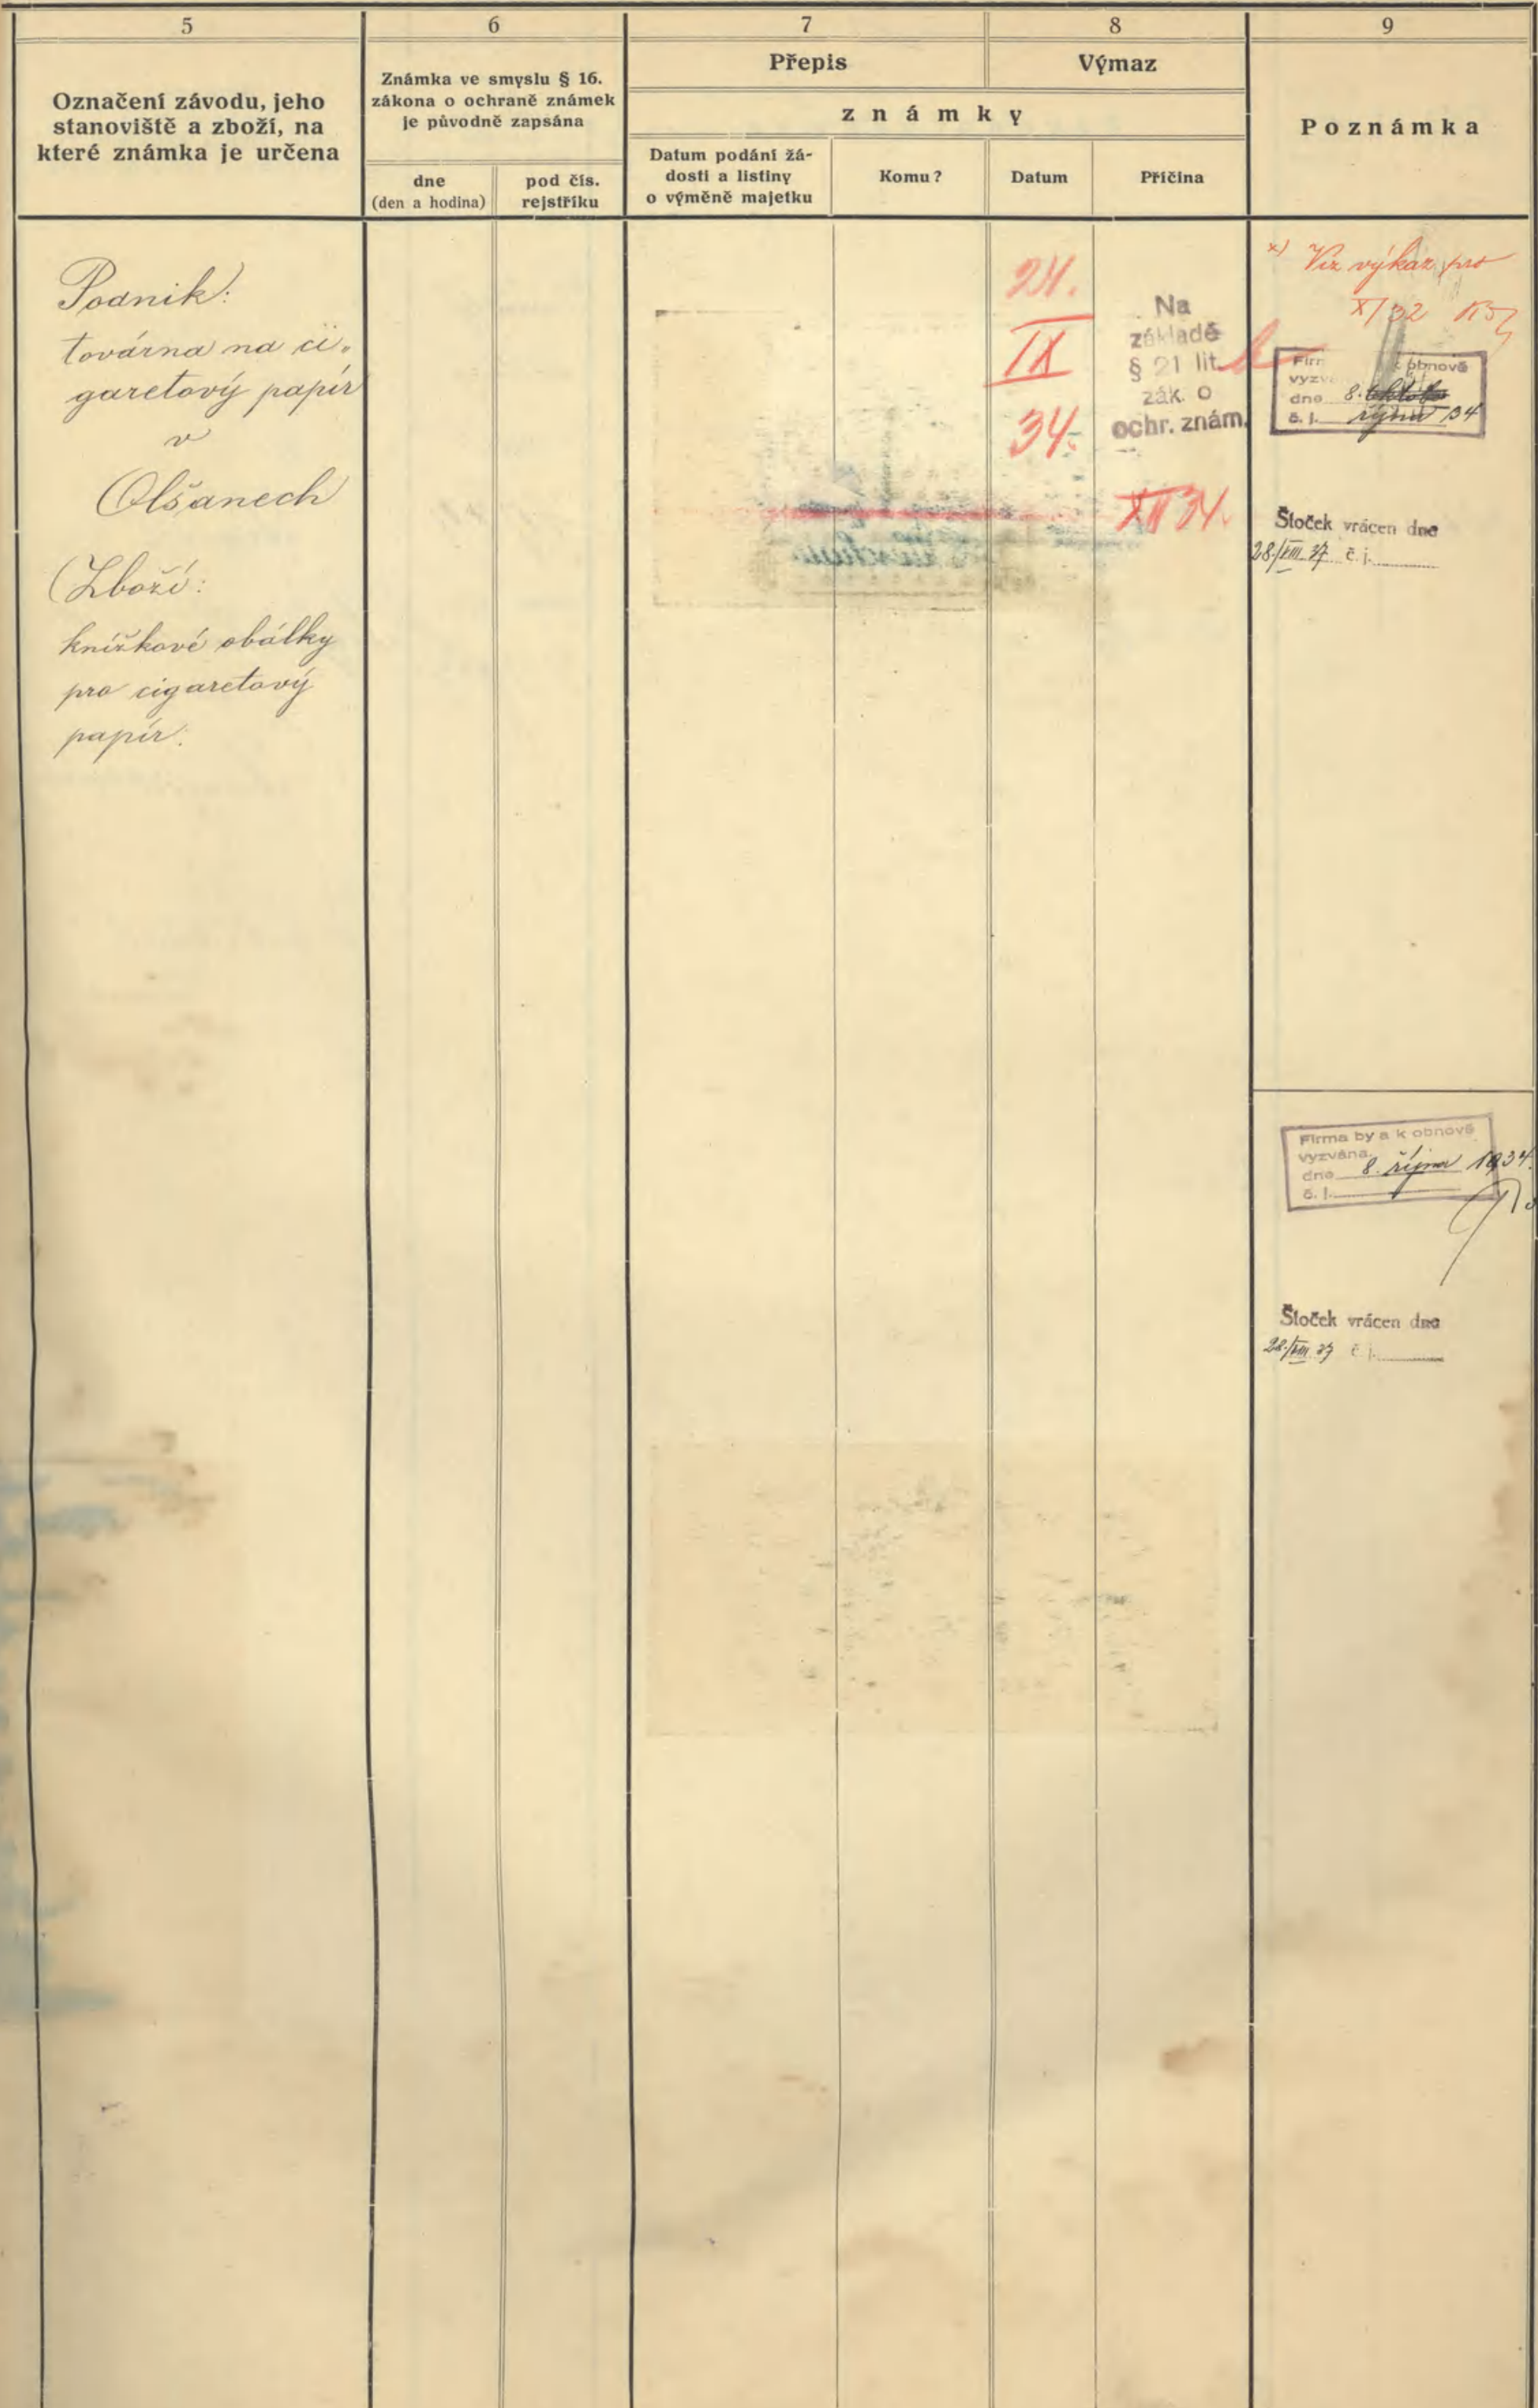 5
Označení závodu, jeho
stanoviště a zboží, na
které známka je určena
6
Známka ve smyslu § 16.
zákona o ochraně známek
je původně zapsána
dne
(den a hodina)
pod čís.
rejstříku
7
Přepis
8
Výmaz
známky
Datum podání žá-
dosti a listiny
o výměně majetku
Komu?
Datum
Příčina
9
Poznámka
Podnik:
továrna na ci-
garetový papír
v
Olšanech
Zboží:
knížkové obálky
pro cigaretový
papír.
24.
IX
34.
Na
základě
§ 21 lit. b
zák. o
ochr. znám.
XII 34.
x) Viz výkaz pro
X/32
Fir k obnově
vyzv
dne 8.
října 34
č. j.
Štoček vrácen dne
28./VIII. 37 č. j.
Firma by a k obnově
vyzvána.
dne 8. října 1934.
č. j.
Štoček vrácen dne
28./VIII. 37 č. j.